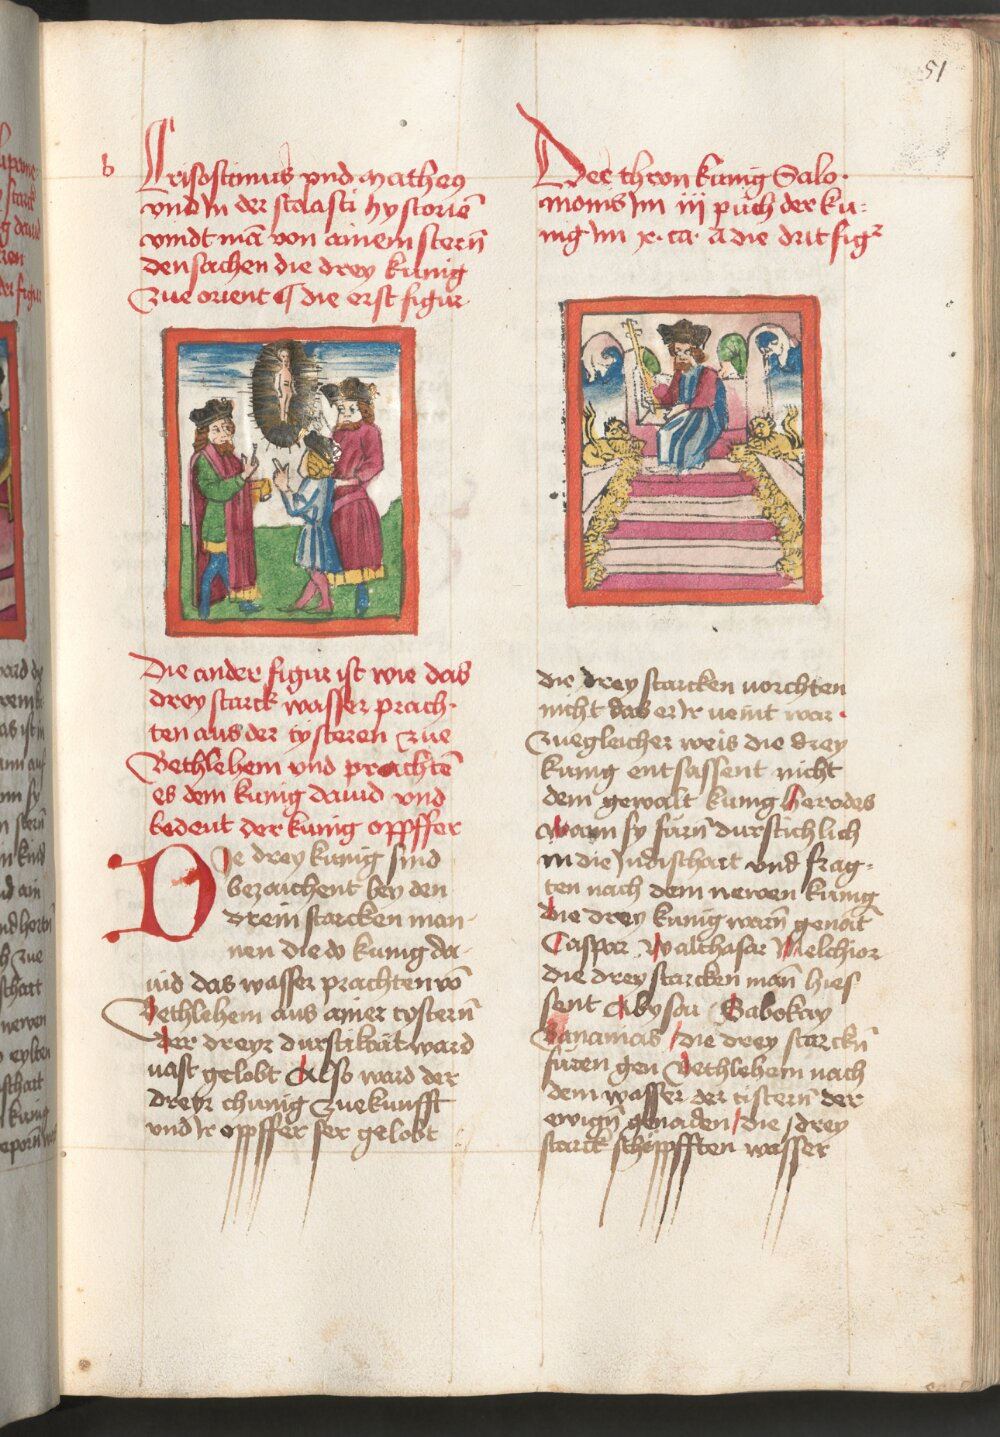 51
b Crisostimus vnd Matheus
vnd in der scolasti hystorien̄
vindt mā von ainem stern̄
den sachen die drey kunig
zue orient ¶ die erst figur
Die ander figur ist wie das
drey starck wasser prach-
ten aus der cysteren zue
Bethlehem vnd prachtē
es dem kunig dauid vnd
bedeut der kunig oppffer
Die drey kunig sind
bezaichent bey den
drein starcken man-
nen die do kunig da-
uid das wasser prachten vō
Bethlehem aus ainer cystern̄
der dreyr durstikait ward
vast gelobt Also ward der
dreyr chunig zuekunfft
vnd ir oppffer ser gelobt
Der thron kunig Salo-
monis im iij puch der ku-
nig im x. ca. die drit figr
die drey starcken vorchten
nicht das er ir veint war.
zuegleicher weis die drey
kunig entsassent nicht
dem gewalt kunig Herodes
wann sy furn̄ durstichlich
in die Judischait vnd frag-
ten nach dem newen kunig
die drey kunig warn̄ genāt
Caspar Walthasar Melchior
die drey starcken man̄ hies
sent Abysai Sabokay
Bananias / die drey starckn̄
furen gen Bethlehem nach
dem wasser der cistern̄ der
ewign̄ genaden / die drey
starck schöppfften wasser